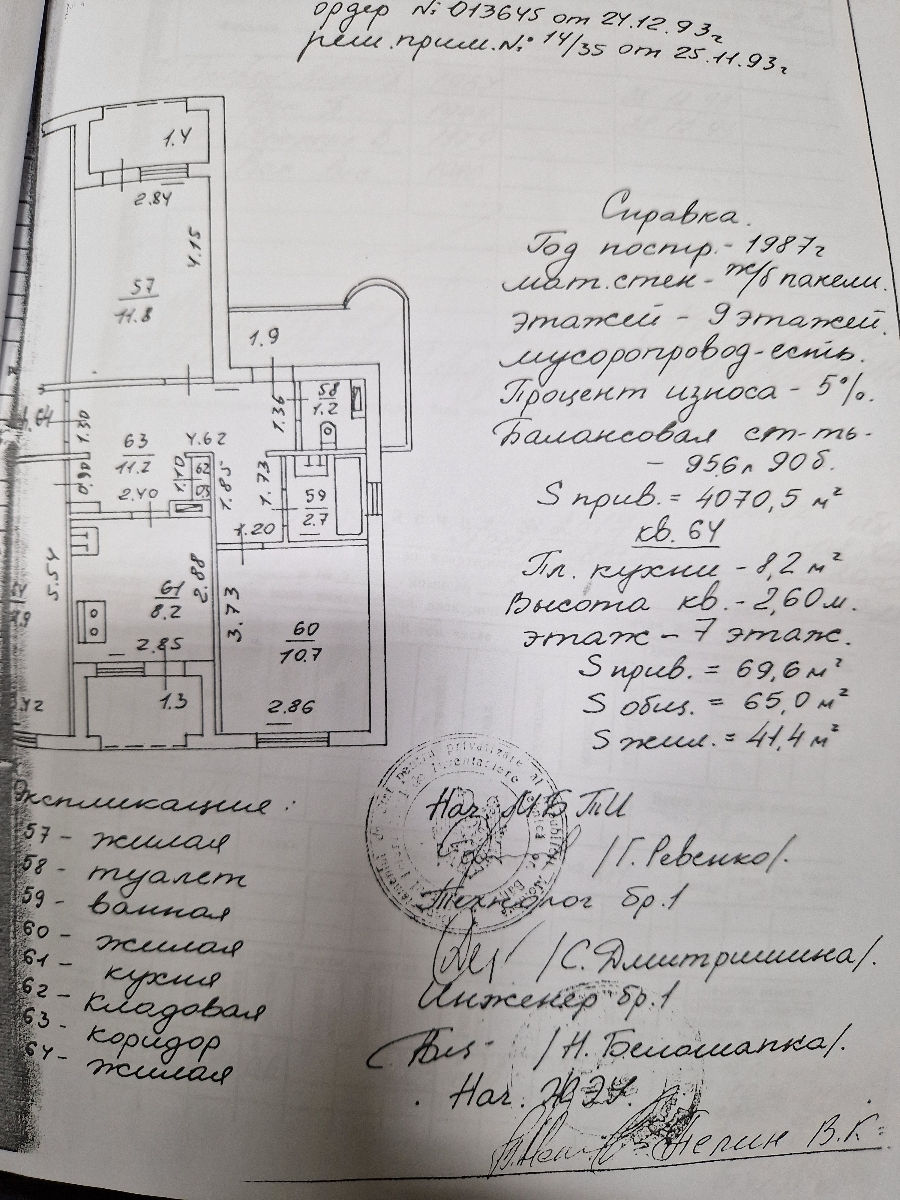 ордер № 013645 от 24.12.93г
реш.прим.№ 14/35 от 25.11.93г
1.4
2.84
4.15
57
11.8
1.9
58
1.2
1.36
1.30
63
11.2
4.62
0.90
2.40
1.10
62
1.85
1.73
59
2.7
1.20
5.54
2.88
61
8.2
3.73
60
10.7
2.85
1.3
2.86
Справка.
Год постр.- 1987г
мат.стен - ж/б панели.
этажей - 9 этажей.
мусоропровод-есть.
Процент износа - 5%.
Балансовая ст-ть-
- 956л 90б.
S прив. = 4070,5 м²
кв. 64
Пл. кухни - 8,2 м²
Высота кв. - 2,60м.
этаж - 7 этаж.
S прив. = 69,6 м²
S общ. = 65,0 м²
S жил. = 41,4 м²
Экспликация:
57 - жилая
58 - туалет
59 - ванная
60 - жилая
61 - кухня
62 - кладовая
63 - коридор
64 - жилая
Нач. МБТИ
/Г. Ревенко/.
Технолог бр.1
/С. Дмитришина/.
Инженер бр.1
/Н. Белошапка/.
Нач. ЖЭУ.
Пепин В.К.